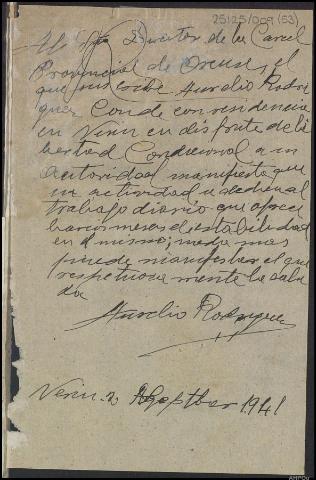 25125/009 (53)
Al Sr Director de la Carcel
Provincial de Orense, el
que suscribe Aurelio Rodri
guez Conde con residencia
en Verin en disfrute de li
bertad Condicional a su
Autoridad manifiesta que
su actividad a dedica al
trabajo diario que ofrece
barios meses de estabilidad
en el mismo; nada mas
puede manifestar el que
respetuosa mente le salu
da
Aurelio Rodriguez
Verin 2 Septber 1941
AHPOu